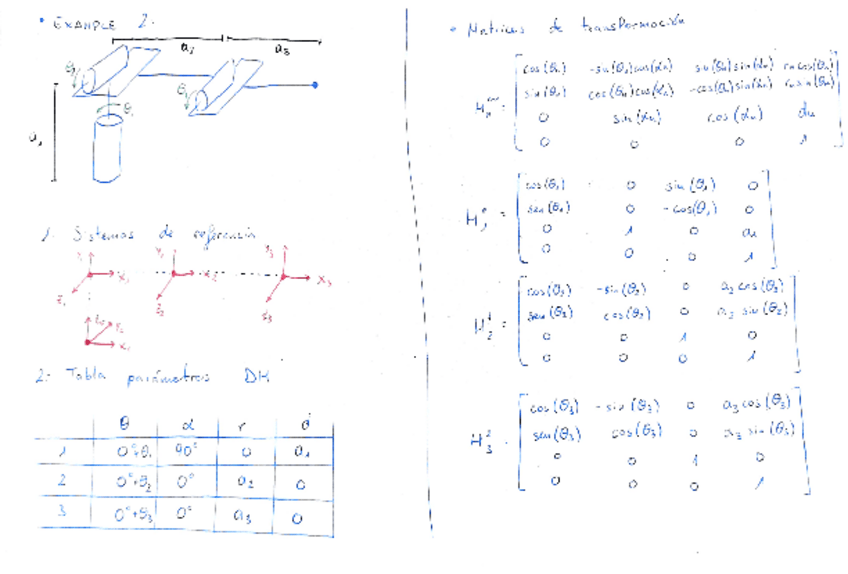 • EXAMPLE 2.
a₂ a₃
θ₂
θ₁
θ₃
a₁
1. Sistemas de referencia
z₀
x₁ x₂ x₃
z₁ z₂
2. Tabla parámetros DH
θ α r d
1 0°+θ₁ 90° 0 a₁
2 0°+θ₂ 0° a₂ 0
3 0°+θ₃ 0° a₃ 0
• Matrices de transformación
Hₙⁿ⁻¹ =
cos(θₙ) -sin(θₙ)cos(αₙ) sin(θₙ)sin(αₙ) rₙcos(θₙ)
sin(θₙ) cos(θₙ)cos(αₙ) -cos(θₙ)sin(αₙ) rₙsin(θₙ)
0 sin(αₙ) cos(αₙ) dₙ
0 0 0 1
H₁⁰ =
cos(θ₁) 0 sin(θ₁) 0
sen(θ₁) 0 -cos(θ₁) 0
0 1 0 a₁
0 0 0 1
H₂¹ =
cos(θ₂) -sin(θ₂) 0 a₂ cos(θ₂)
sen(θ₂) cos(θ₂) 0 a₂ sin(θ₂)
0 0 1 0
0 0 0 1
H₃² =
cos(θ₃) -sin(θ₃) 0 a₃ cos(θ₃)
sen(θ₃) cos(θ₃) 0 a₃ sin(θ₃)
0 0 1 0
0 0 0 1